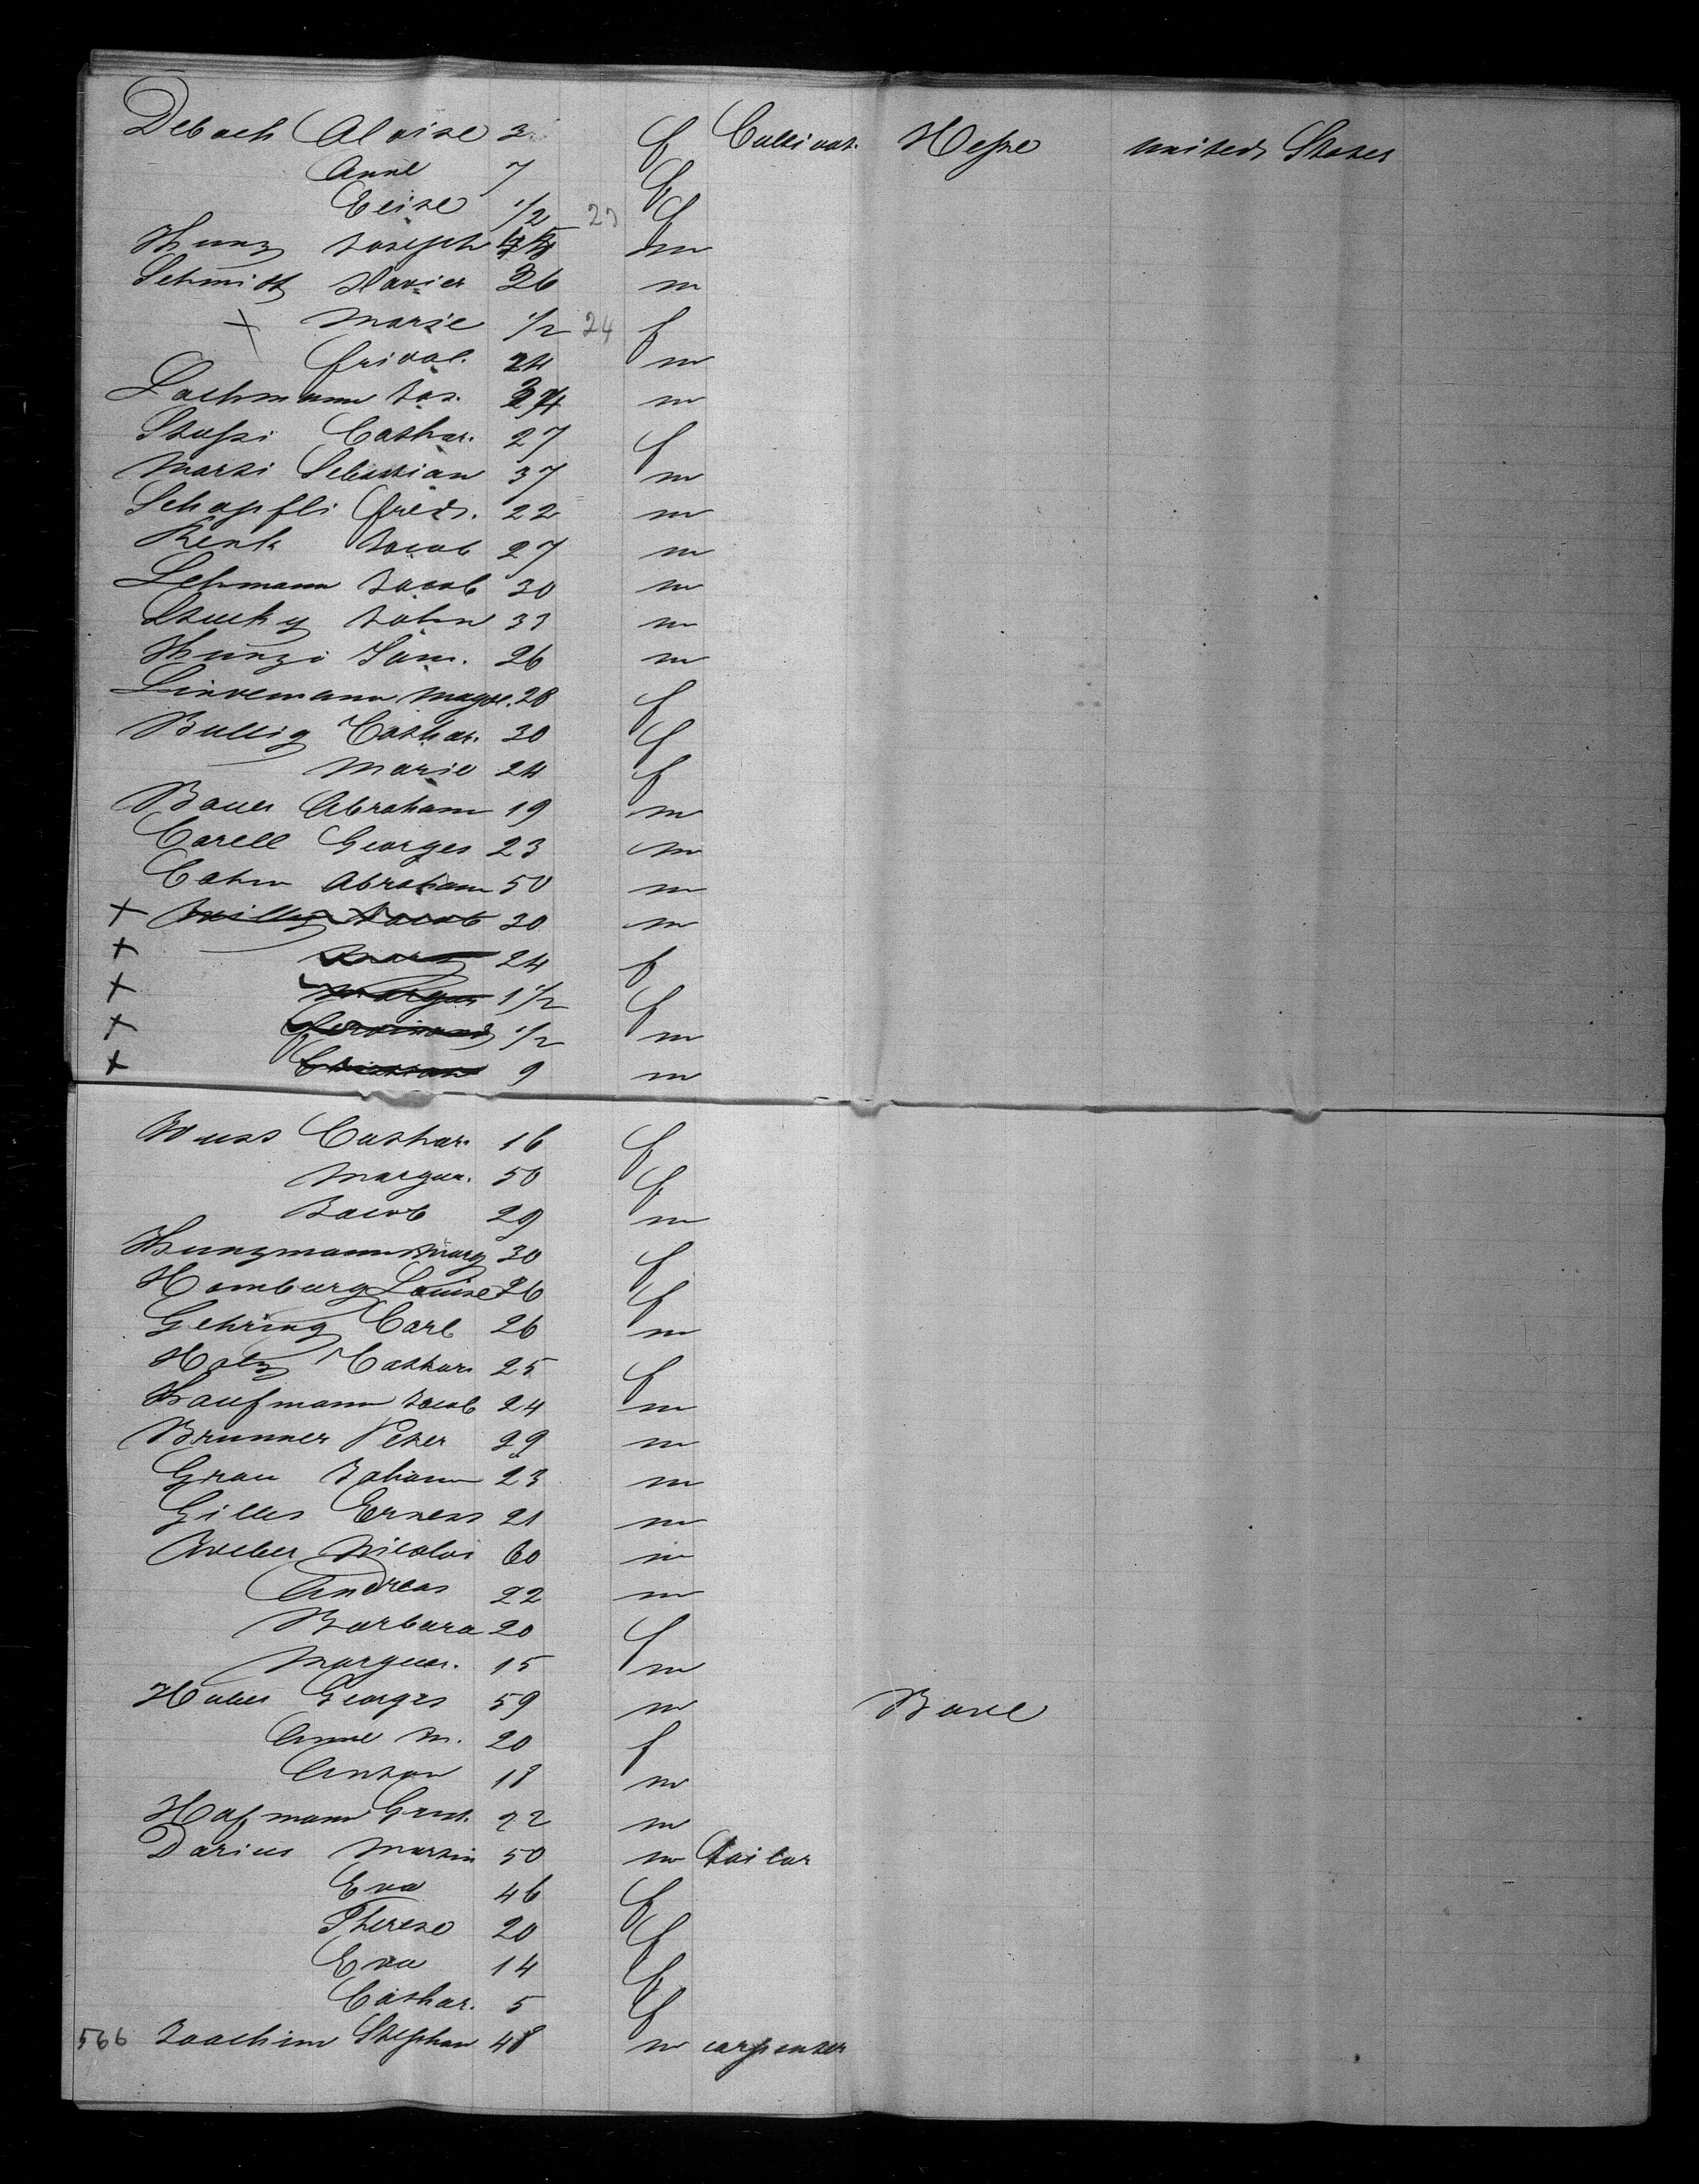 Debach Aloise 3 f Cultivat. Hesse united States
Anne 7 f
Elise 1/2 23 f
Kunz Joseph m
Schmidt Xavier 26 m
+ Marie 1/2 24 f
Fridol. 24 m
Lachmann Jos. m
Stussi Cathar. 27 f
Marti Sebastian 37 m
Schapfli Fred. 22 m
Kenk Jacob 27 m
Lehmann Jacob 30 m
Stucky John 33 m
Kunzi Sam. 26 m
Lindemann Magd. 28 f
Bullig Cathar. 30 f
Marie 24 f
Bauer Abraham 19 m
Carell Georges 23 m
Cahn Abraham 50 m
+ Willy Jacob 30 m
+ 24 f
+ Margar 1 1/2 f
+ Ferdinand 1/2 m
+ Christian 9 m
Wuss Cathar. 16 f
Margar. 50 f
Jacob 29 m
Kunzmann Marg 30 f
Homburg Louise 26 f
Gehring Carl 26 m
Hotz Cathar. 25 f
Kaufmann Jacob 24 m
Brunner Peter 29 m
Grau Johann 23 m
Gilles Ernest 21 m
Weber Nicolas 60 m
Andreas 22 m
Barbara 20 f
Margar. 15 m
Huber Georges 59 m Base
Anne M. 20 f
Anton 18 m
Hofmann Gust. 22 m
Darius Martin 50 m tailor
Eva 46 f
Therese 20 f
Eva 14 f
Cathar. 5 f
566 Joachim Stephan 48 m carpenter